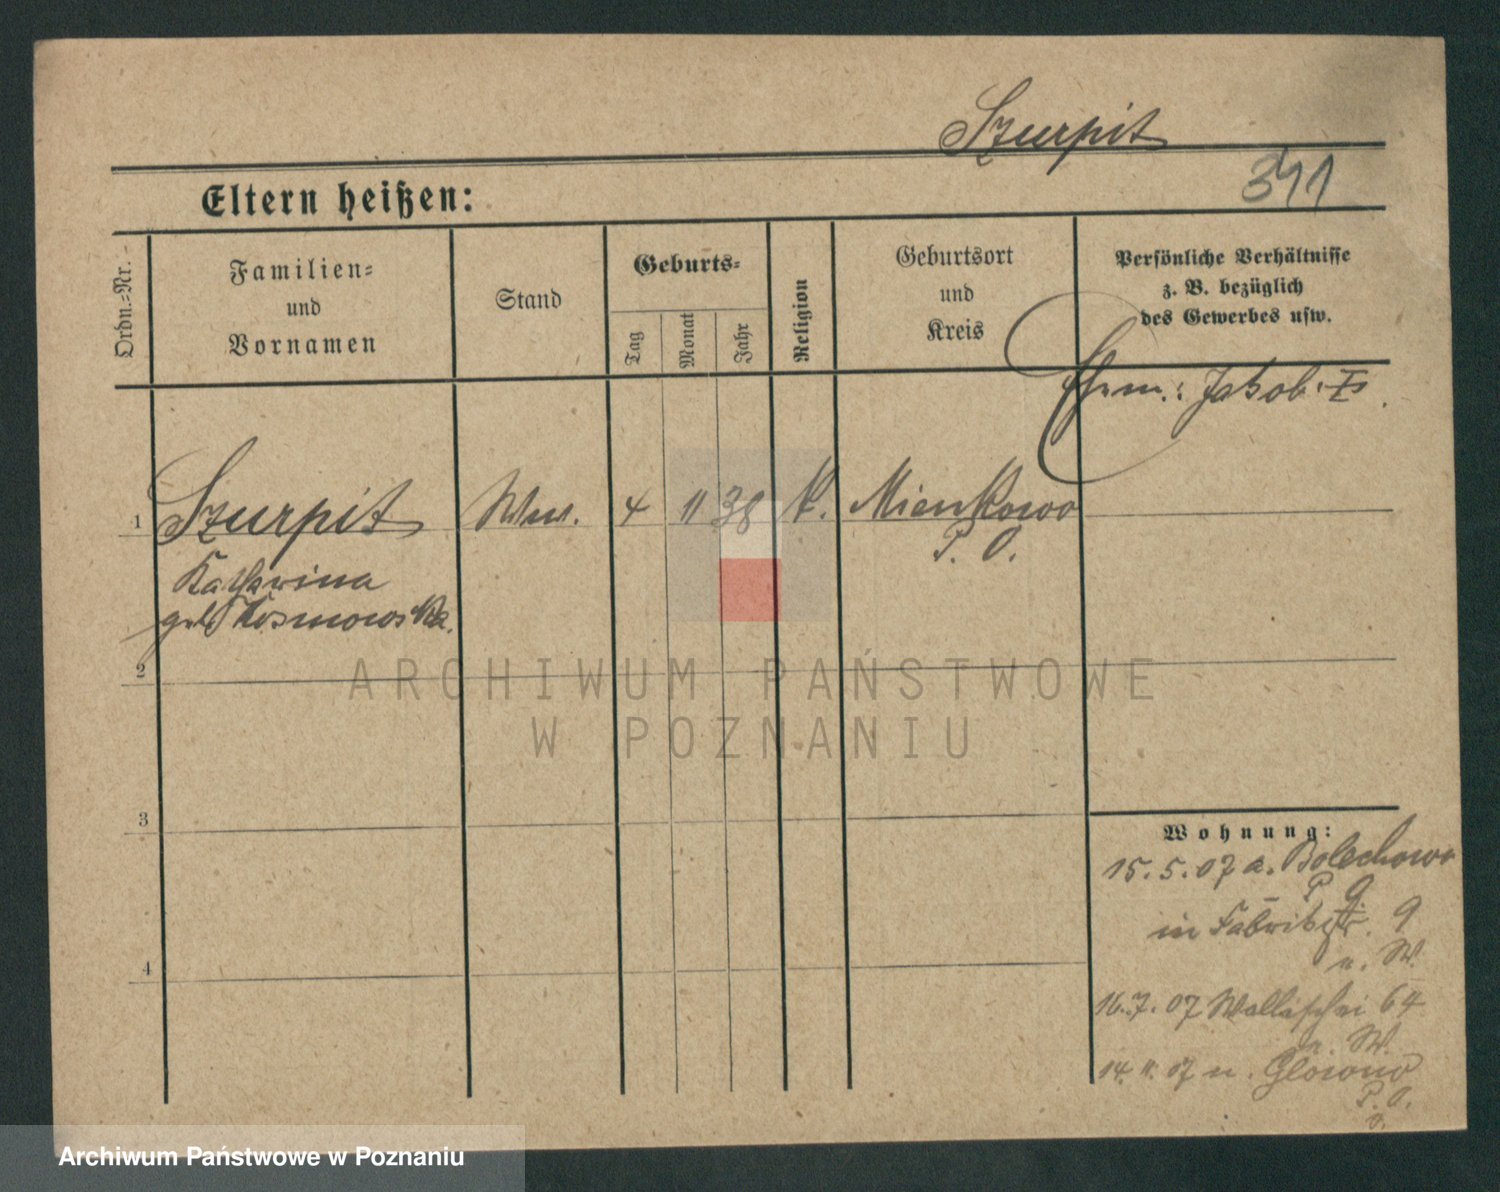 Szurpit
341
Eltern heißen:
Ordn.-Nr.
Familien-
und
Vornamen
Stand
Geburts-
Tag
Monat
Jahr
Religion
Geburtsort
und
Kreis
Persönliche Verhältnisse
z. B. bezüglich
des Gewerbes usw.
Ehem.: Jakob
1
Szurpit
Ww.
4
11
38
k.
Mienkowo
P. O.
Katharina
geb. Kosmowska.
2
ARCHIWUM PAŃSTWOWE
W POZNANIU
3
Wohnung:
15. 5. 07 a. Bolechowo
P. O.
in Fabrikstr. 9
n. W.
4
16. 7. 07 Wallischei 64
n. W.
14. 11. 07 n. Glowno
P. O.
Archiwum Państwowe w Poznaniu